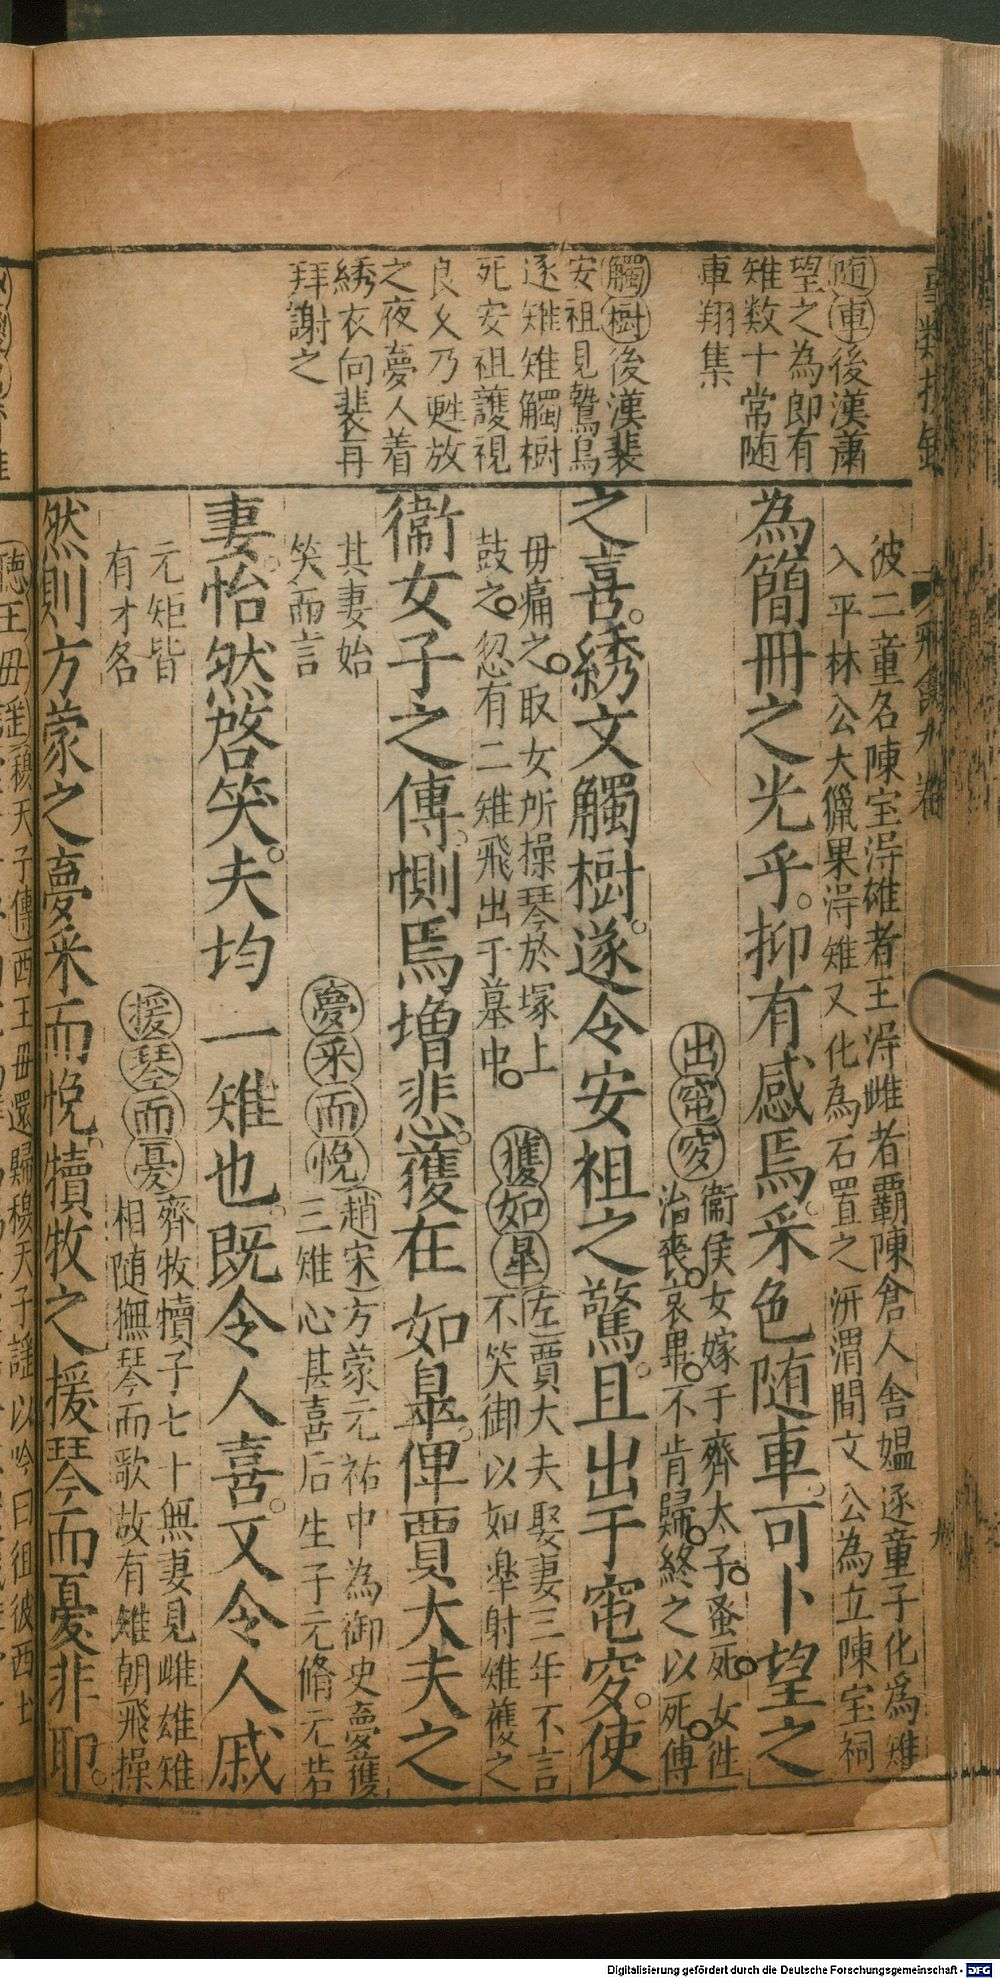 随車後漢蕭
望之為即有
雉数十常随
車翔集
觸樹後漢裴
安祖見鷙鳥
逐雉雉觸樹
死安祖護視
良乆乃甦放
之夜夢人着
綉衣向裴再
拜謝之
彼二童名陳宝淂雄者王淂雌者覇陳倉人舍媪逐童子化為雉
入平林公大獵果淂雉又化為石置之汧渭間文公為立陳宝祠
為簡冊之光乎抑有感焉采色随車可卜望之
出竃突
衞侯女嫁于齊太子蚤死女徃
治喪哀畢不肯歸終之以死傅
之喜綉文觸樹遂令安祖之驚且出于竃突使
毋痛之取女所操琴於塚上
鼓之忽有二雉飛出于墓中
獲如皐
左賈大夫娶妻三年不言
不笑御以如皐射雉獲之
衞女子之傅惻焉増悲獲在如皐俾賈大夫之
其妻始
笑而言
夢采而悅
趙宋方蒙元祐中為御史夢獲
三雉心甚喜后生子元脩元若
妻怡然啓笑夫均一雉也既令人喜又令人戚
元矩皆
有才名
援琴而憂
齊牧犢子七十無妻見雌雄雉
相随撫琴而歌故有雉朝飛操
然則方蒙之夢采而悅犢牧之援琴而憂非耶
穆天子傳西王毋還歸穆天子謠以吟曰徂彼西土
Digitalisierung gefördert durch die Deutsche Forschungsgemeinschaft - DFG